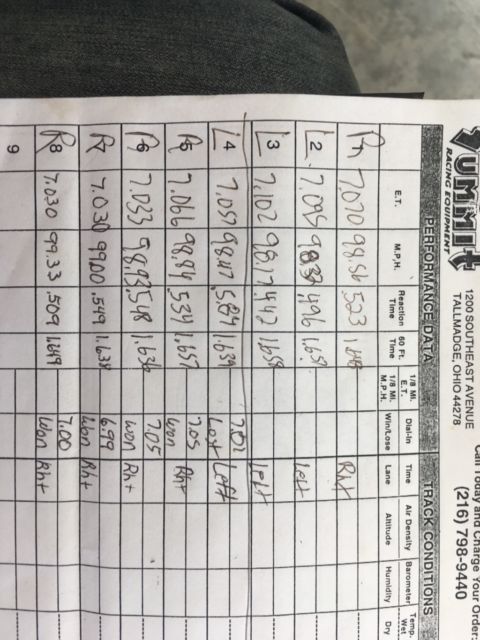 SUMMIT
RACING EQUIPMENT
1200 SOUTHEAST AVENUE
TALLMADGE, OHIO 44278
Call Today and Charge Your Order:
(216) 798-9440
PERFORMANCE DATA TRACK CONDITIONS
E.T. M.P.H. Reaction Time 60 Ft. Time 1/8 Mi. E.T. 1/8 Mi. M.P.H. Dial-In Win/Lose Time Lane Air Density Altitude Barometer Humidity Temp. Wet Dry
R1 7.070 98.56 .523 Rht
L2 7.095 98.39 .496 1.659 left
L3 7.102 98.17 .442 1.658 left
L4 7.057 98.17 .584 1.639 7.02 Lost Left
R5 7.066 98.84 .534 1.657 7.05 won Rht
R6 7.053 98.93 .548 1.636 7.05 won Rht
R7 7.030 99.00 .549 1.638 6.99 Won Rht
R8 7.030 99.33 .509 1.649 7.00 Won Rht
9